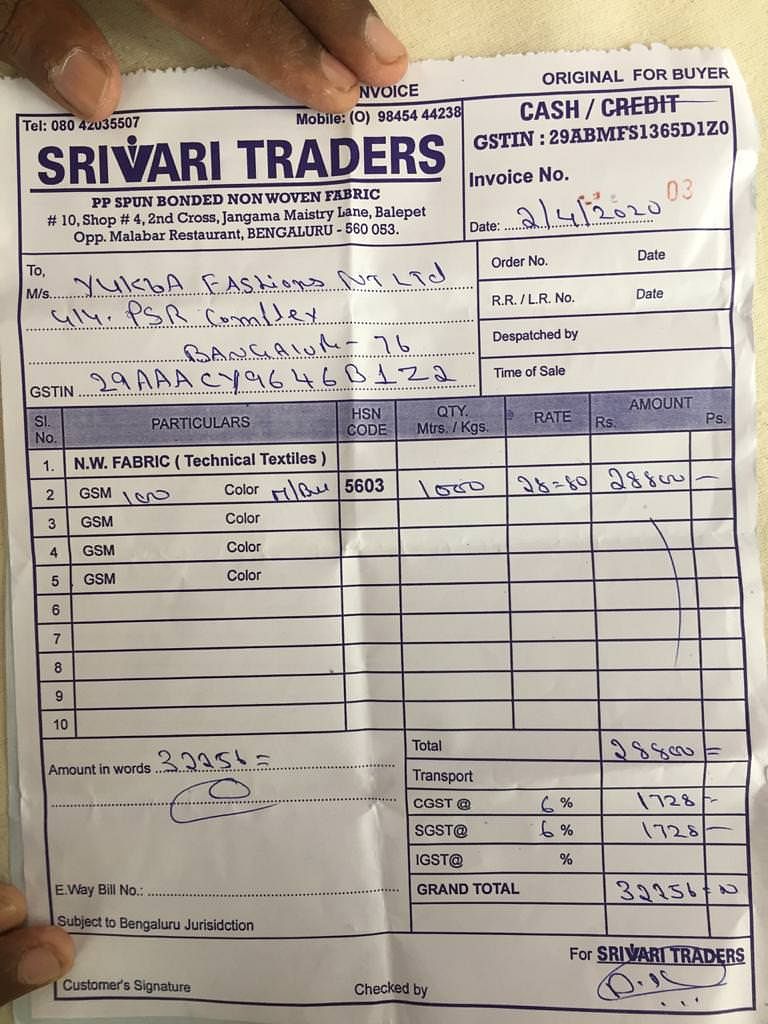 NVOICE
ORIGINAL FOR BUYER
Tel: 080 42035507
Mobile: (O) 98454 44238
SRIVARI TRADERS
PP SPUN BONDED NON WOVEN FABRIC
# 10, Shop # 4, 2nd Cross, Jangama Maistry Lane, Balepet
Opp. Malabar Restaurant, BENGALURU - 560 053.
CASH / CREDIT
GSTIN : 29ABMFS1365D1Z0
Invoice No. 03
Date: 2/4/2020
To,
M/s. YUKBA FASHIONS PVT LTD
414. PSR Complex
BANGALUR - 76
GSTIN 29AAACY9646B1Z2
Order No. Date
R.R. / L.R. No. Date
Despatched by
Time of Sale
Sl. No. PARTICULARS HSN CODE QTY. Mtrs. / Kgs. RATE AMOUNT Rs. Ps.
1. N.W. FABRIC ( Technical Textiles )
2 GSM 100 Color 5603 1000 28=80 28800 -
3 GSM Color
4 GSM Color
5 GSM Color
6
7
8
9
10
Total 28800 =
Amount in words 32256 =
Transport
CGST @ 6 % 1728 -
SGST@ 6 % 1728 -
IGST@ %
E.Way Bill No.:
GRAND TOTAL 32256 =
Subject to Bengaluru Jurisidction
For SRIVARI TRADERS
Customer's Signature
Checked by